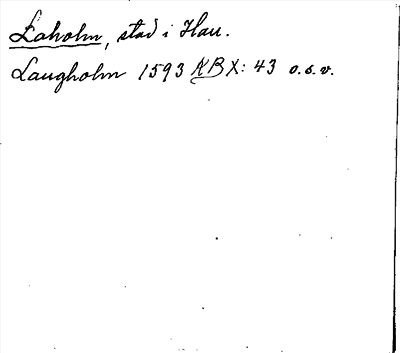 Laholm, stad i Hall.
Laugholm 1593 KB X: 43 o.s.v.